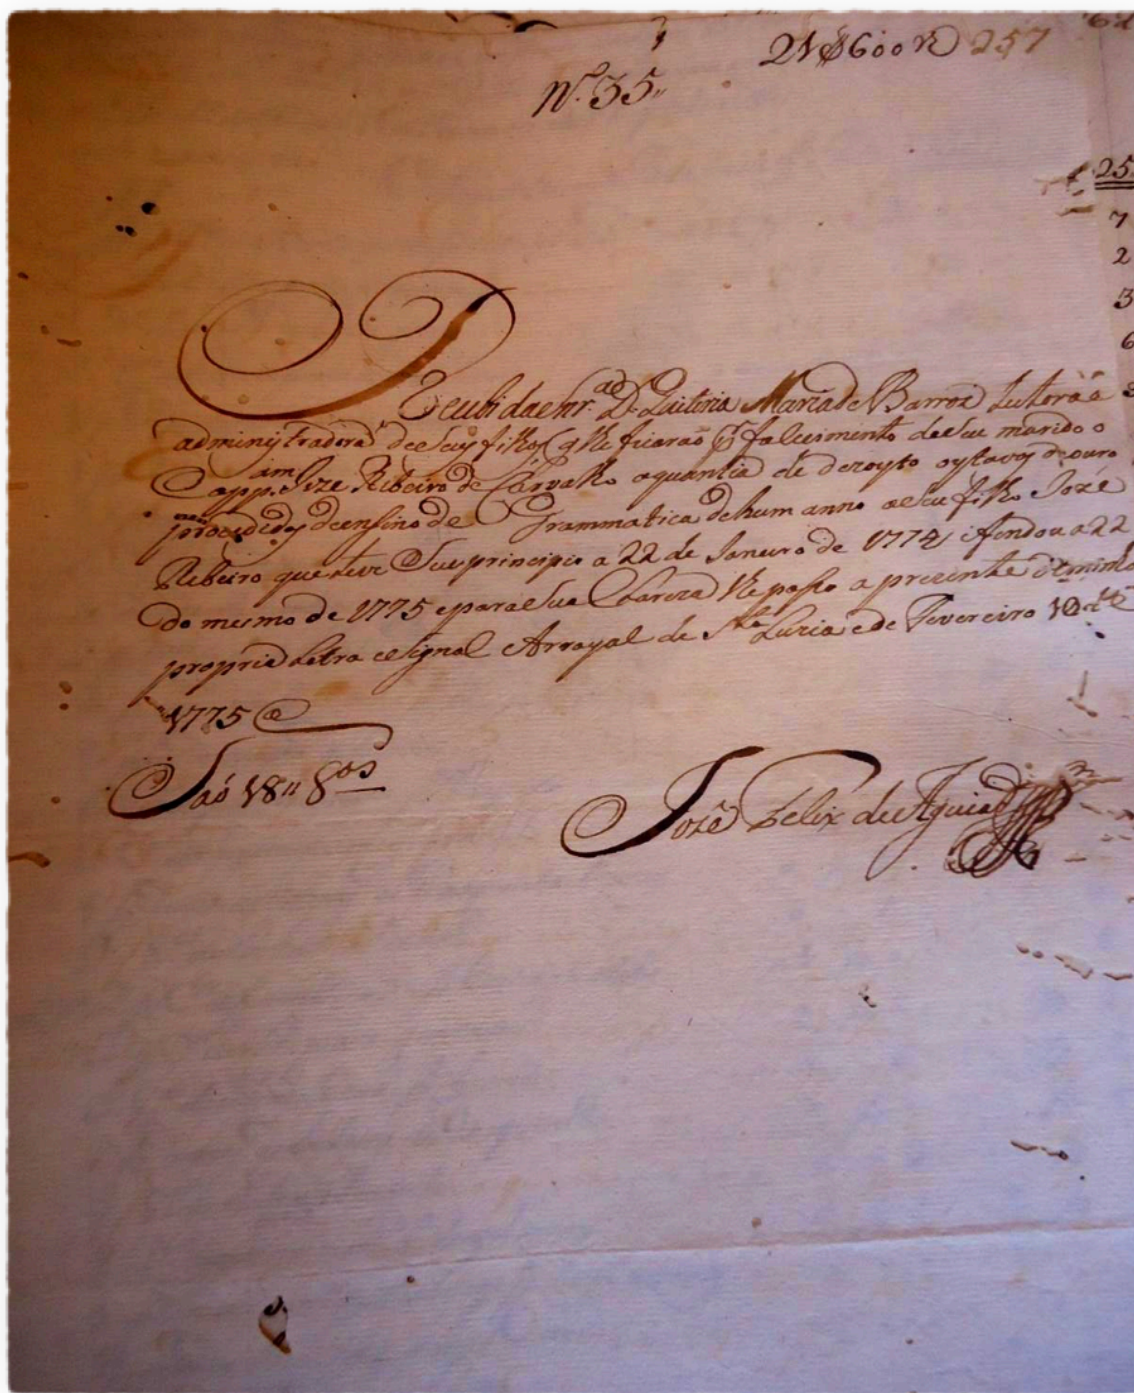 21$600 rs 257
N.º 35,,
25
7
2
3
6
Recebi da Snr.ª D. Quiteria Maria de Barros Tutora e
administradora de seus filhos q̃ lhe ficarão p falecimento de seu marido o
Capp.am Joze Ribeiro de Carvalho a quantia de dezoyto oytavas de ouro
procedidas do ensino de Grammatica de hum anno a seu filho Jozé
Ribeiro que teve Seu principio a 22 de Janeiro de 1774 e findou a 22
do mesmo de 1775 e para Sua Clareza lhe passo a prezente de minha
propria Letra e Signal Arrayal de S.ta Luzia e de Fevereiro 10 de
1775
Saõ 18,, 8.as
Jozé Felix de Aguiar